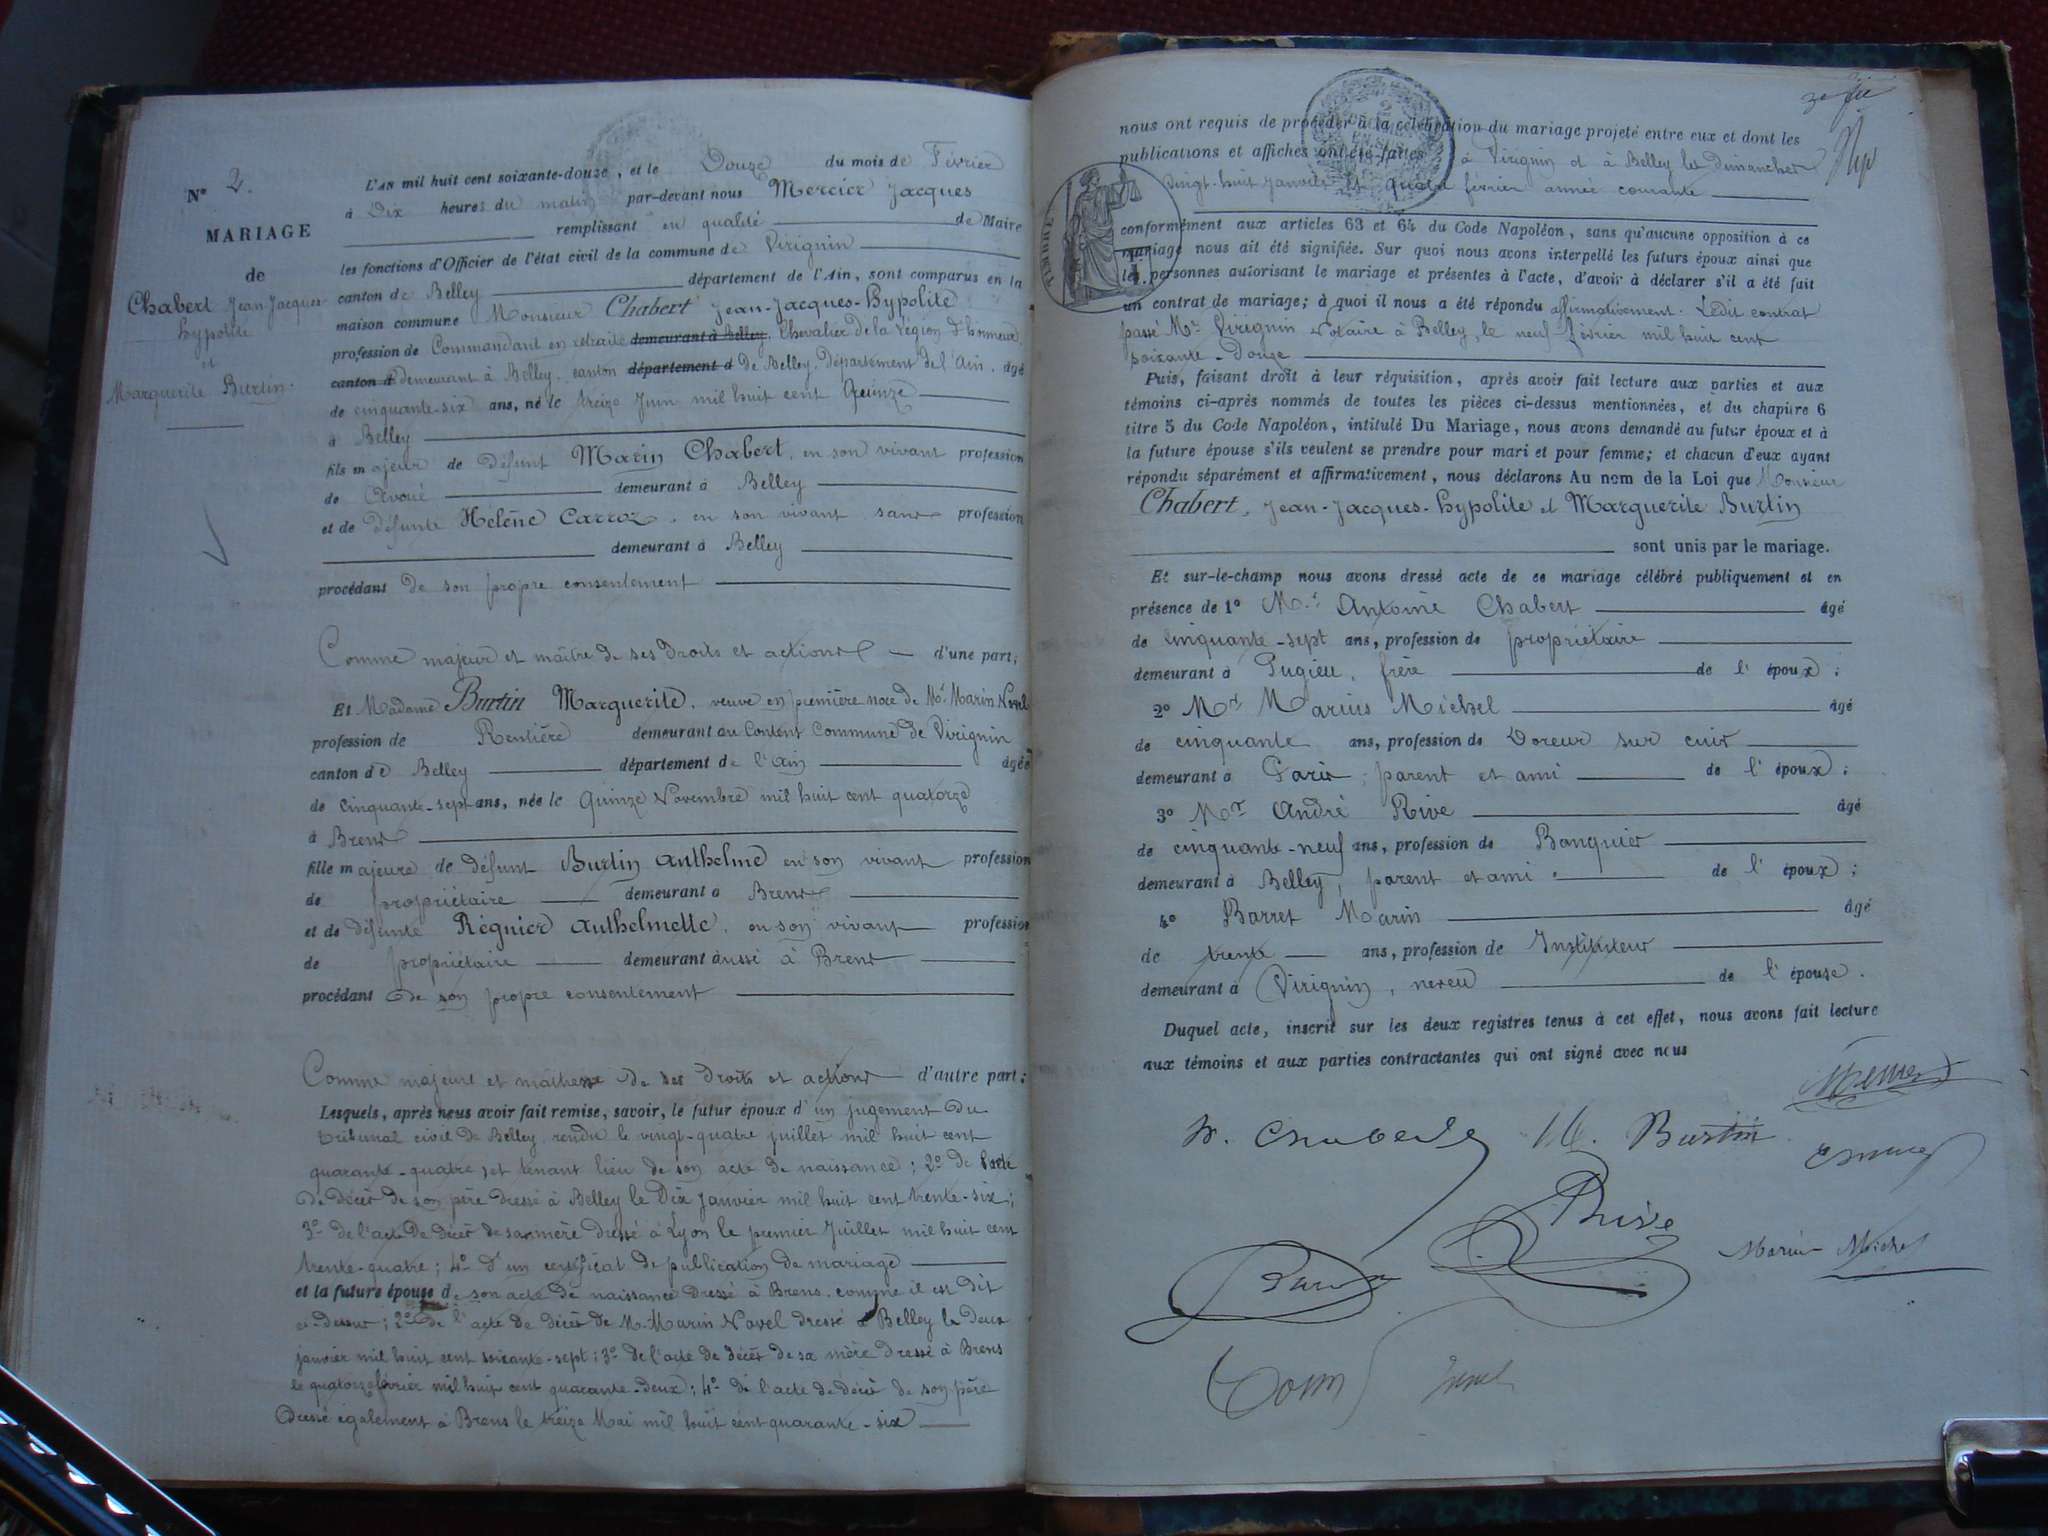 N° 2.
MARIAGE
de
Chabert Jean-Jacques
hypolite
et
Marguerite Burtin.
L'AN mil huit cent soixante-douze, et le Douze du mois de Février
à Dix heures du matin par-devant nous Mercier Jacques
remplissant en qualité de Maire
les fonctions d'Officier de l'état civil de la commune de Virignin
canton de Belley département de l'Ain, sont comparus en la
maison commune Monsieur Chabert Jean-Jacques-Hypolite
profession de Commandant en retraite demeurant à Belley, Chevalier de la Légion d'honneur,
canton d demeurant à Belley, canton département d de Belley, Département de l'Ain, âgé
de cinquante-six ans, né le treize Juin mil huit cent Quinze
à Belley
fils majeur de défunt Marin Chabert, en son vivant profession
de Avoué demeurant à Belley
et de défunte Helène Carroz, en son vivant sans profession
demeurant à Belley
procédant de son propre consentement
Comme majeur et maître de ses droits et actions d'une part;
Et Madame Burtin Marguerite, veuve en première noce de Mr Marin Navel
profession de Rentière demeurant au Content Commune de Virignin
canton de Belley département de l'Ain âgée
de cinquante-sept ans, née le Quinze Novembre mil huit cent quatorze
à Brens
fille majeure de défunt Burtin Anthelme en son vivant profession
de propriétaire demeurant à Brens
et de défunte Régnier Anthelmette, en son vivant profession
de propriétaire demeurant aussi à Brens
procédant de son propre consentement
Comme majeure et maîtresse de ses droits et actions d'autre part:
Lesquels, après nous avoir fait remise, savoir, le futur époux d'un jugement du
tribunal civil de Belley, rendu le vingt-quatre juillet mil huit cent
quarante-quatre, et tenant lieu de son acte de naissance; 2° de l'acte
de décès de son père dressé à Belley le Dix janvier mil huit cent trente-six;
3° de l'acte de décès de sa mère dressé à Lyon le premier Juillet mil huit cent
trente-quatre; 4° d'un certificat de publication de mariage
et la future épouse de son acte de naissance dressé à Brens, comme il est dit
ci-dessus; 2° de l'acte de décès de M. Marin Navel dressé à Belley le deux
janvier mil huit cent soixante-sept; 3° de l'acte de décès de sa mère dressé à Brens
le quatorze février mil huit cent quarante-deux; 4° de l'acte de décès de son père
dressé également à Brens le treize Mai mil huit cent quarante-six
nous ont requis de procéder à la célébration du mariage projeté entre eux et dont les
publications et affiches ont été faites à Virignin et à Belley les dimanches
vingt-huit janvier et quatre février année courante
TIMBRE
conformément aux articles 63 et 64 du Code Napoléon, sans qu'aucune opposition à ce
mariage nous ait été signifiée. Sur quoi nous avons interpellé les futurs époux ainsi que
les personnes autorisant le mariage et présentes à l'acte, d'avoir à déclarer s'il a été fait
un contrat de mariage; à quoi il nous a été répondu affirmativement. Ledit contrat
passé Me Virignin Notaire à Belley, le neuf février mil huit cent
soixante-Douze
Puis, faisant droit à leur réquisition, après avoir fait lecture aux parties et aux
témoins ci-après nommés de toutes les pièces ci-dessus mentionnées, et du chapitre 6
titre 5 du Code Napoléon, intitulé Du Mariage, nous avons demandé au futur époux et à
la future épouse s'ils veulent se prendre pour mari et pour femme; et chacun d'eux ayant
répondu séparément et affirmativement, nous déclarons Au nom de la Loi que Monsieur
Chabert, Jean-Jacques-hypolite et Marguerite Burtin
sont unis par le mariage.
Et sur-le-champ nous avons dressé acte de ce mariage célébré publiquement et en
présence de 1° Mr Antoine Chabert âgé
de cinquante-sept ans, profession de propriétaire
demeurant à Pugieu, frère de l'époux;
2° Mr Marius Michel âgé
de cinquante ans, profession de Doreur sur cuir
demeurant à Paris; parent et ami de l'époux;
3° Mr André Rive âgé
de cinquante-neuf ans, profession de Banquier
demeurant à Belley, parent et ami de l'époux;
4° Barret Marin âgé
de trente ans, profession de Instituteur
demeurant à Virignin, neveu de l'épouse.
Duquel acte, inscrit sur les deux registres tenus à cet effet, nous avons fait lecture
aux témoins et aux parties contractantes qui ont signé avec nous
M. Burtin
Rive
Marius Michel